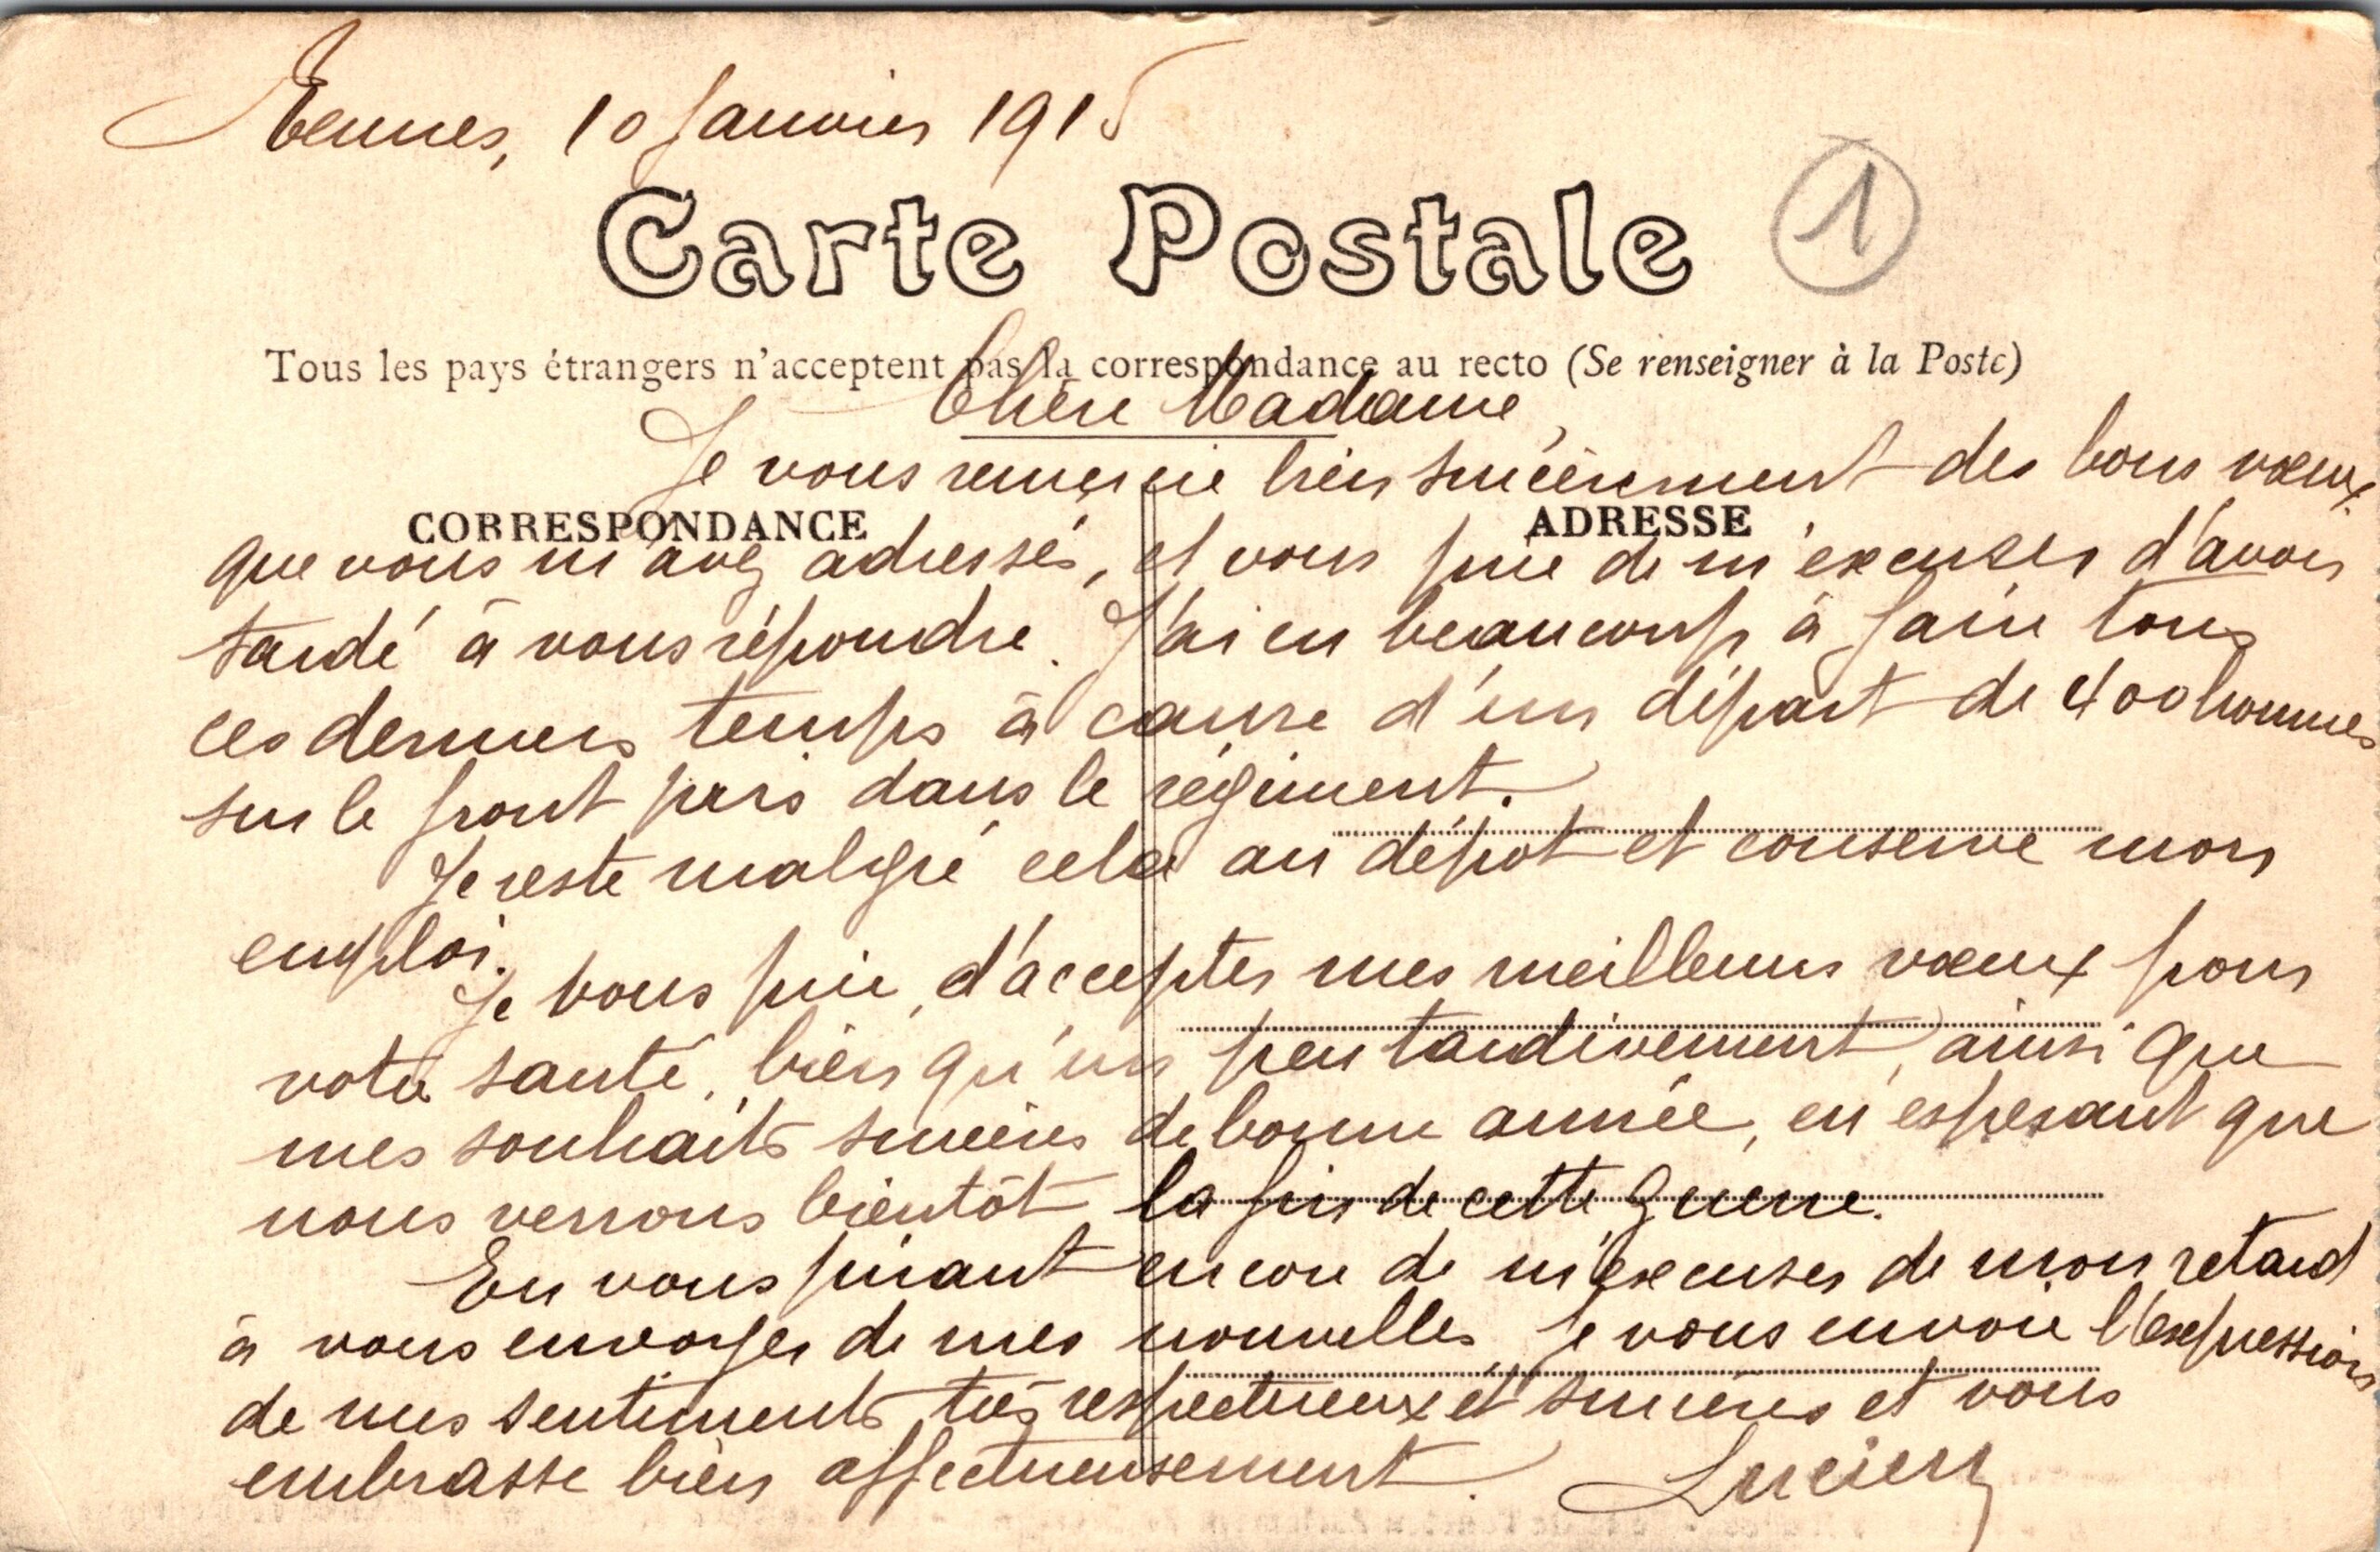 Rennes, 10 Janvier 1915
Carte Postale
1
Tous les pays étrangers n'acceptent pas la correspondance au recto (Se renseigner à la Poste)
Chère Madame,
Je vous remercie bien sincèrement des bons vœux
CORRESPONDANCE
ADRESSE
que vous m'avez adressés, et vous prie de m'excuser d'avoir
tardé à vous répondre. J'ai eu beaucoup à faire tous
ces derniers temps à cause d'un départ de 400 hommes
sur le front pris dans le régiment.
Je reste malgré cela au dépôt et conserve mon
emploi.
Je vous prie, d'accepter mes meilleurs vœux pour
votre santé, bien qu'un peu tardivement, ainsi que
mes souhaits sincères de bonne année, en espérant que
nous verrons bientôt la fin de cette guerre.
En vous priant encore de m'excuser de mon retard
à vous envoyer de mes nouvelles, je vous envoie l'expression
de mes sentiments très respectueux et sincères et vous
embrasse bien affectueusement.
Lucien